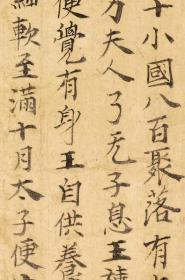 十小國八百聚落有
万夫人了无子息王
便覺有身王自供養
細軟至滿十月太子便